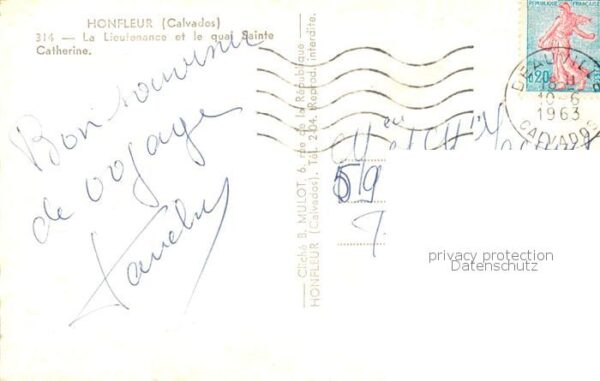 HONFLEUR (Calvados)
314 — La Lieutenance et le quai Sainte
Catherine.
Bon souvenir
de voyage
Cliché B. MULOT, 6, rue de la République
HONFLEUR (Calvados). Tél. 2-04. (Reprod. interdite.
REPUBLIQUE FRANCAISE
0,20
DEAUVILLE
18 H
10-6
1963
CALVADOS
59
privacy protection
Datenschutz